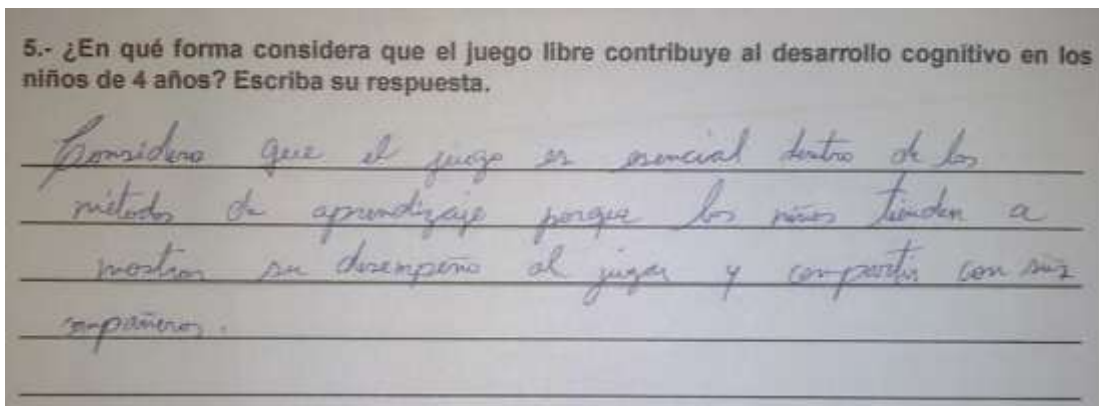 5.- ¿En qué forma considera que el juego libre contribuye al desarrollo cognitivo en los
niños de 4 años? Escriba su respuesta.
Considero que el juego es esencial dentro de los
métodos de aprendizaje porque los niños tienden a
mostrar su desempeño al jugar y compartir con sus
compañeros.